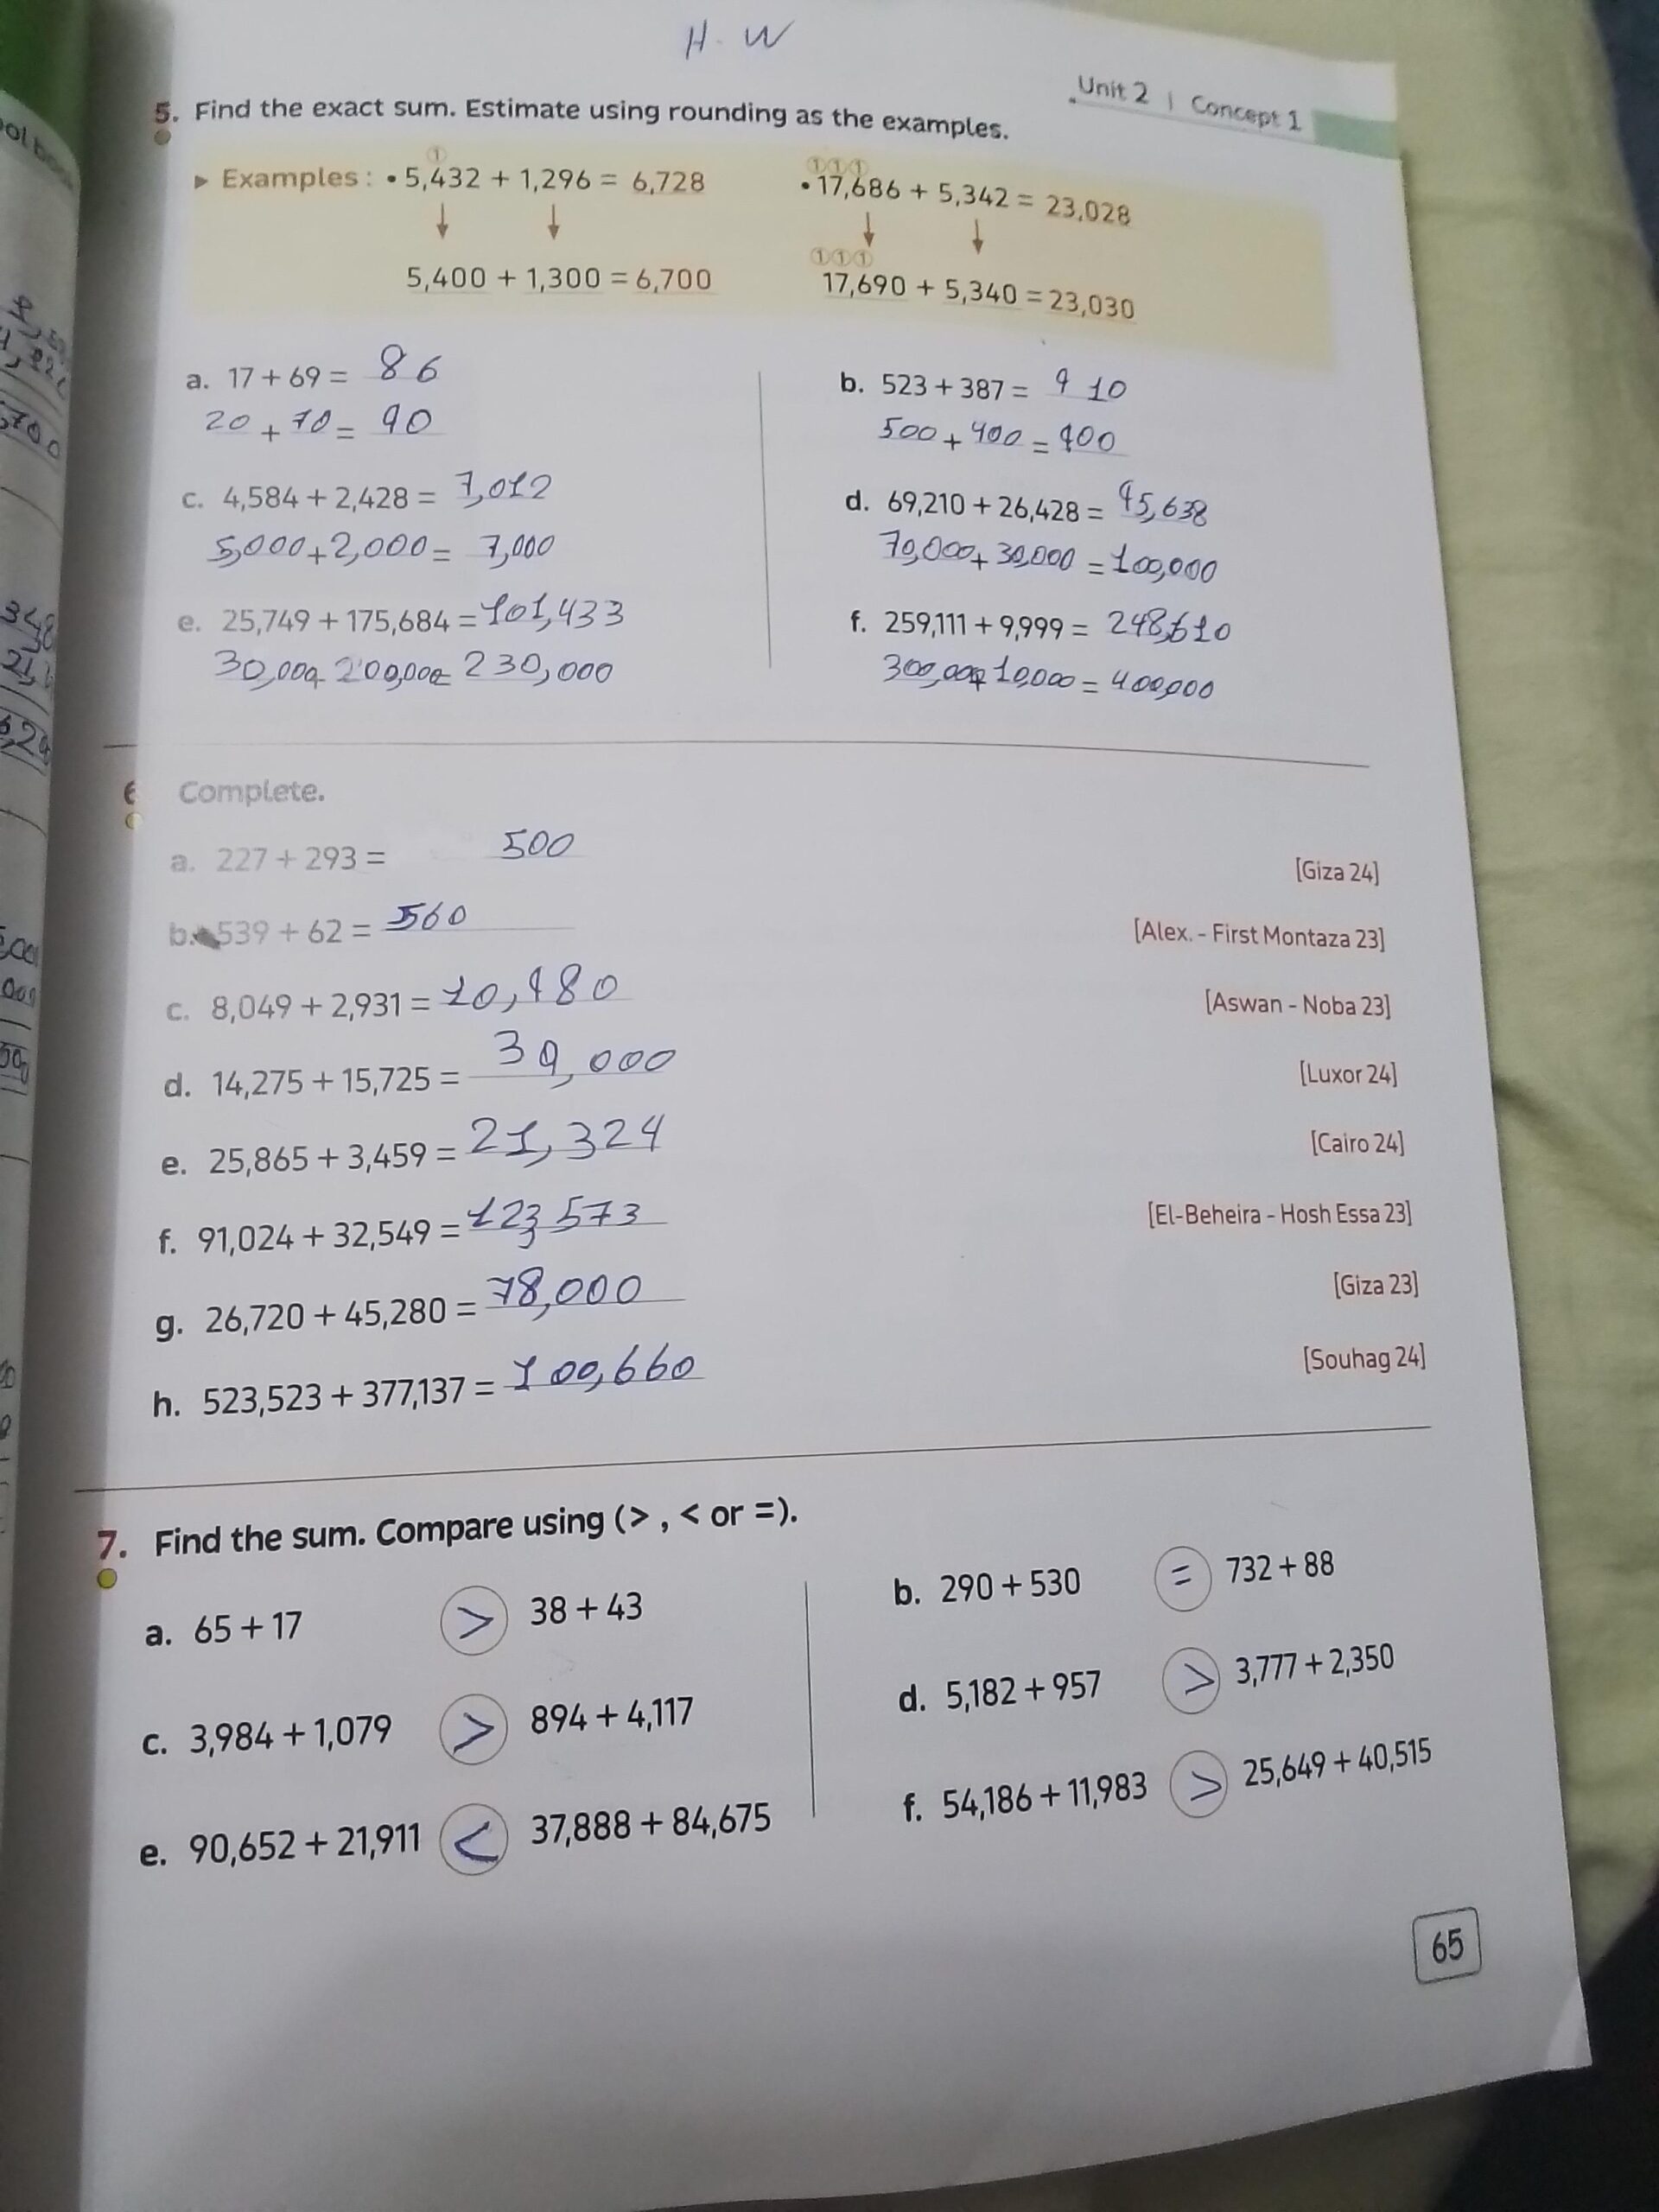 H. W
Unit 2 | Concept 1
5. Find the exact sum. Estimate using rounding as the examples.
① ①①①
▶ Examples : • 5,432 + 1,296 = 6,728 • 17,686 + 5,342 = 23,028
↓ ↓ ↓ ↓
①①①
5,400 + 1,300 = 6,700 17,690 + 5,340 = 23,030
a. 17 + 69 = 86 b. 523 + 387 = 910
20 + 70 = 90 500 + 400 = 900
c. 4,584 + 2,428 = 7,012 d. 69,210 + 26,428 = 95,638
5,000 + 2,000 = 7,000 70,000 + 30,000 = 100,000
e. 25,749 + 175,684 = 101,433 f. 259,111 + 9,999 =
30,000 200,000 = 230,000 300,000 + 10,000 = 400,000
6 Complete.
a. 227 + 293 = 500 [Giza 24]
b. 539 + 62 = 560 [Alex. - First Montaza 23]
c. 8,049 + 2,931 = 10,980 [Aswan - Noba 23]
d. 14,275 + 15,725 = 39,000 [Luxor 24]
e. 25,865 + 3,459 = 21,324 [Cairo 24]
f. 91,024 + 32,549 = 123,573 [El-Beheira - Hosh Essa 23]
g. 26,720 + 45,280 = 78,000 [Giza 23]
h. 523,523 + 377,137 = 100,660 [Souhag 24]
7. Find the sum. Compare using (> , < or =).
a. 65 + 17 > 38 + 43 b. 290 + 530 = 732 + 88
c. 3,984 + 1,079 > 894 + 4,117 d. 5,182 + 957 > 3,777 + 2,350
e. 90,652 + 21,911 < 37,888 + 84,675 f. 54,186 + 11,983 > 25,649 + 40,515
65